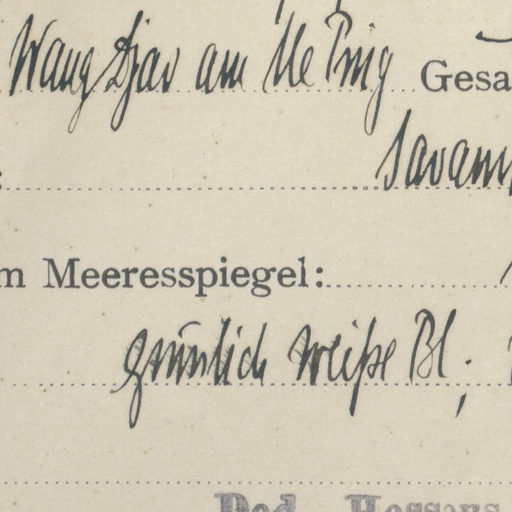 Wang Djao am Me Ping Gesa
Savann
m Meeresspiegel:
grünlich weiße Bl;
Ded. Hossens